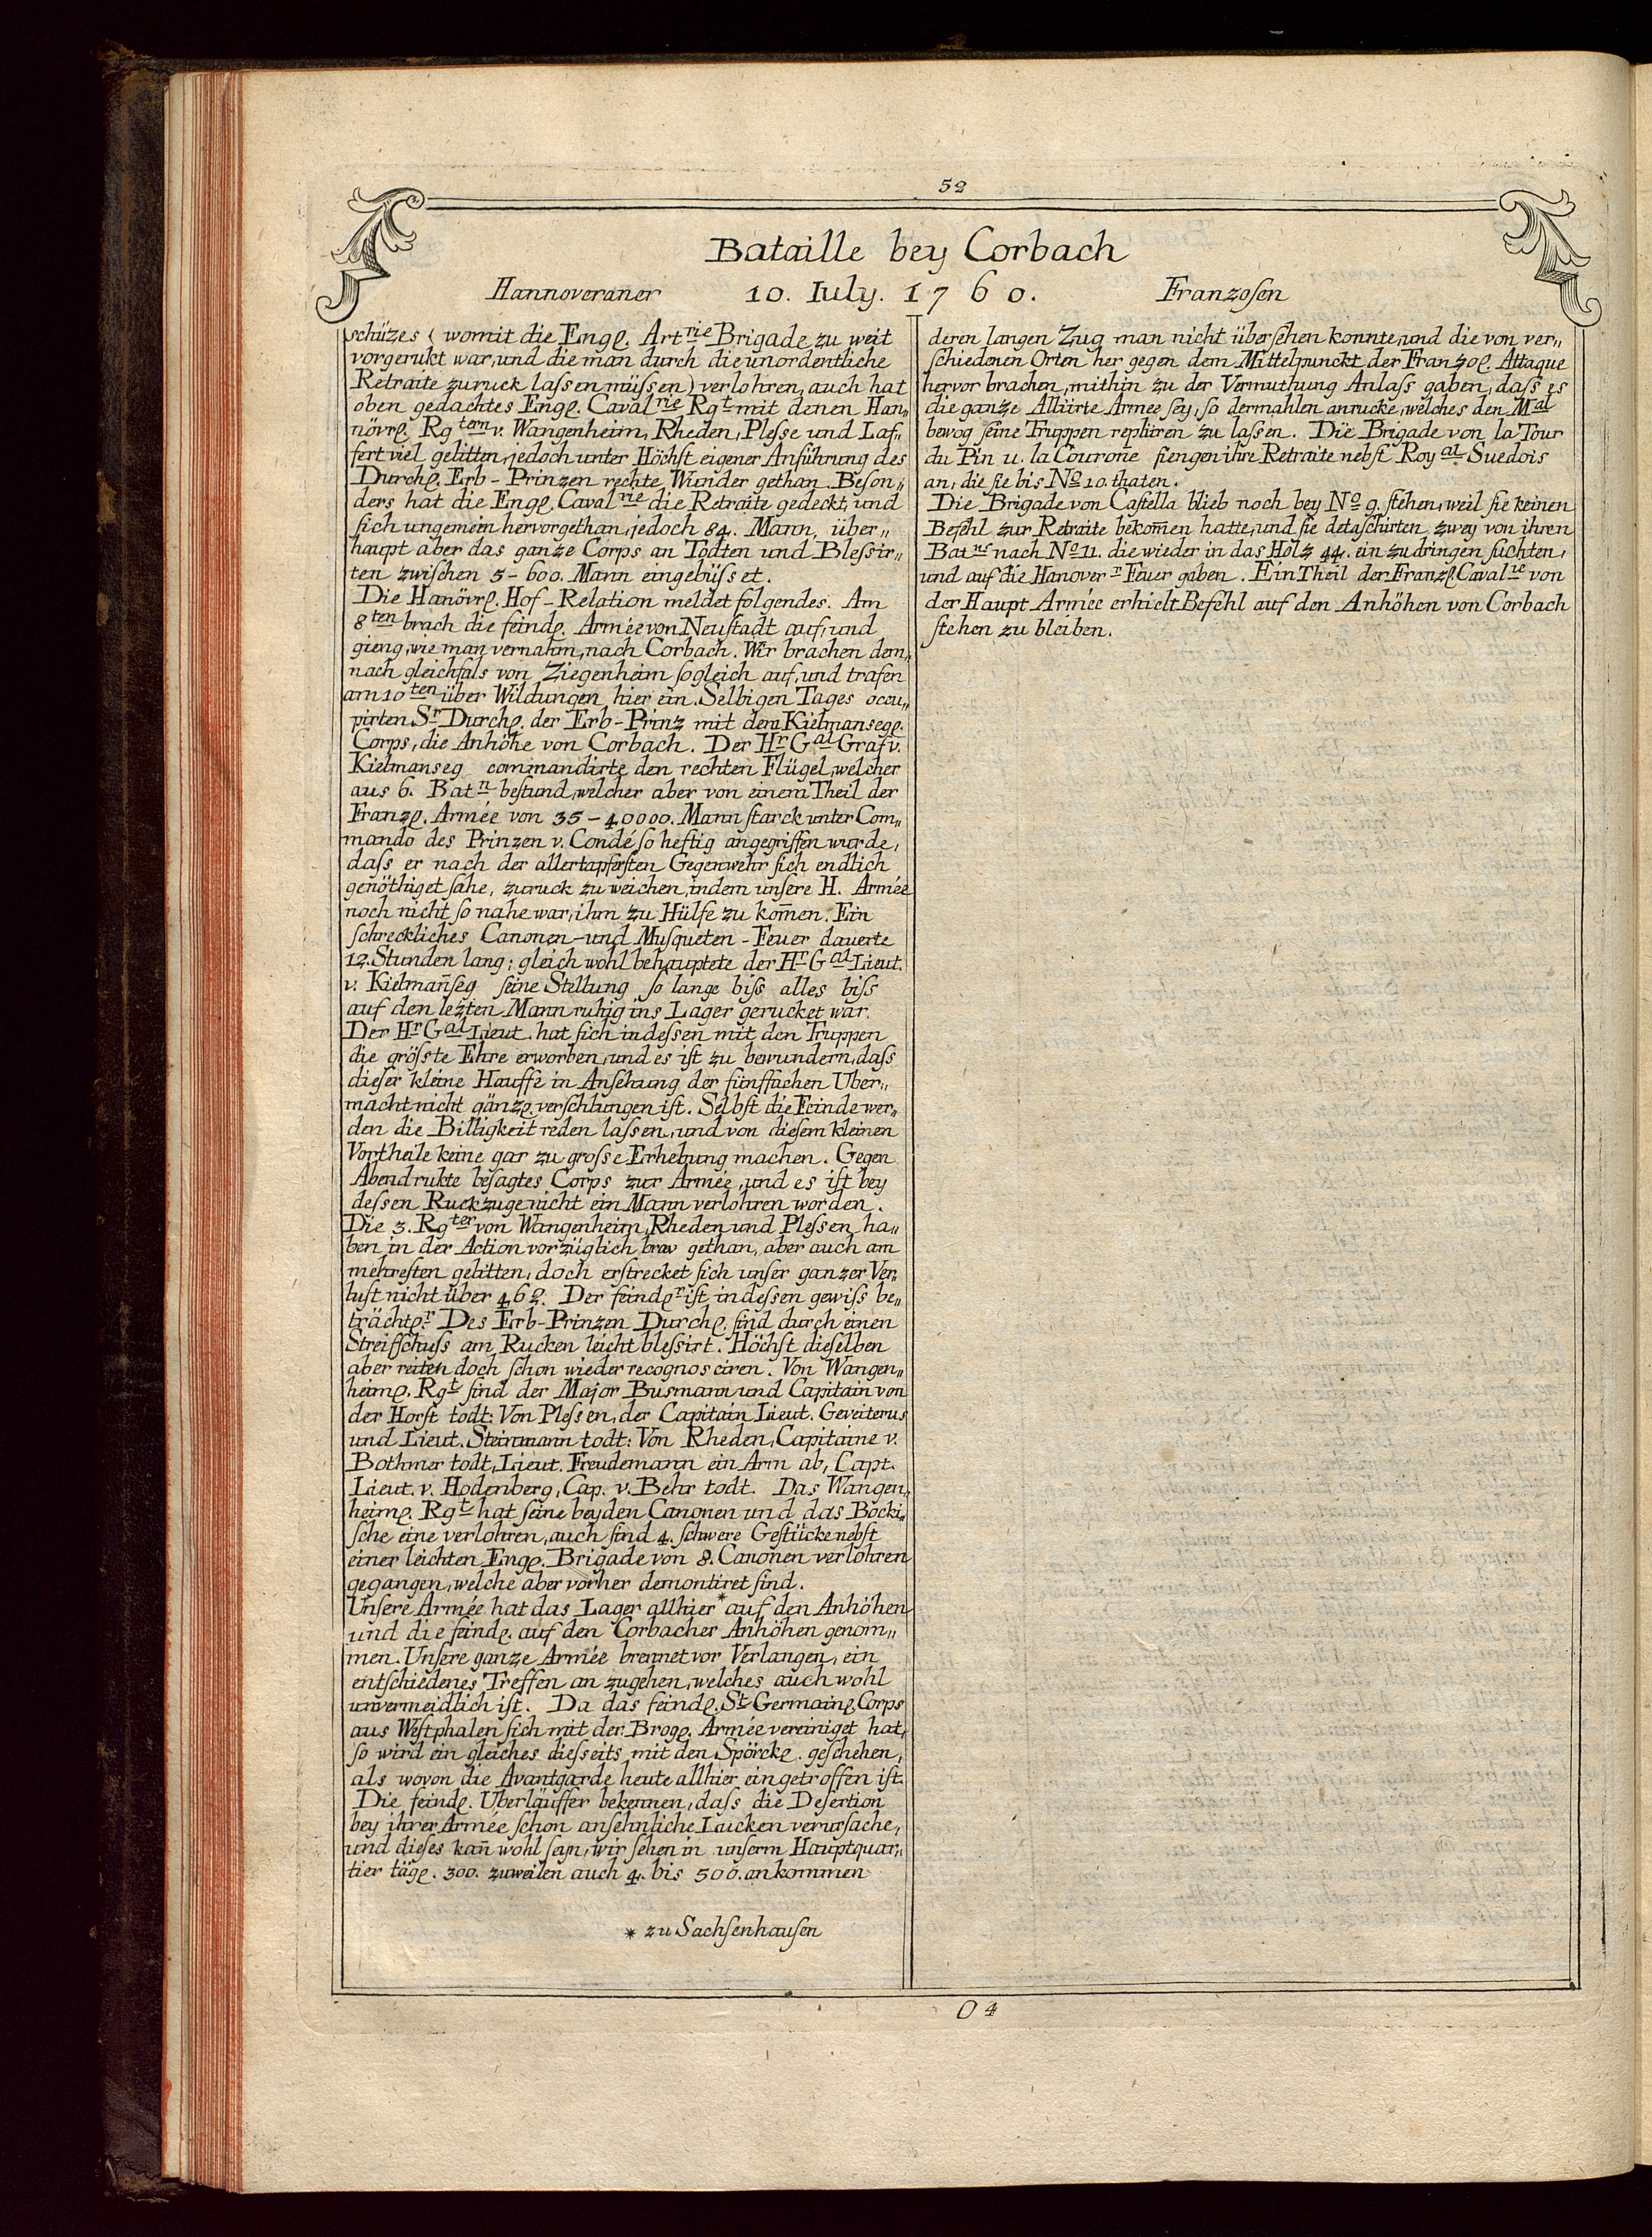 52
Bataille bey Corbach
Hannoveraner 10. July. 1760. Franzosen
schüzes (womit die Engl. Art.rie Brigade zu weit
vorgerukt war, und die man durch die unordentliche
Retraite zuruck lassen müssen) verlohren, auch hat
oben gedachtes Engl. Cavalrie Rgt mit denen Han„
növrl. Rgtern v. Wangenheim, Rheden, Plesse und Laf„
fert viel gelitten, jedoch unter Höchst eigener Anführung des
Durchl. Erb-Prinzen rechte Wunder gethan. Beson„
ders hat die Engl. Cavalrie die Retraite gedeckt, und
sich ungemein hervorgethan, jedoch 84. Mann, über„
haupt aber das ganze Corps an Todten und Blessir„
ten zwischen 5-600. Mann eingebüsset.
Die Hanövrl. Hof-Relation meldet folgendes. Am
8ten brach die feindl. Armée von Neustadt auf, und
gieng, wie man vernahm, nach Corbach. Wir brachen dem„
nach gleichfals von Ziegenheim sogleich auf, und trafen
am 10ten über Wildungen hier ein. Selbigen Tages occu„
pirten Sr Durchl. der Erb-Prinz mit dem Kielmansegl.
Corps, die Anhöhe von Corbach. Der Hr Gal Graf v.
Kielmanseg commandirte den rechten Flügel, welcher
aus 6. Batn bestund, welcher aber von einem Theil der
Franzl. Armée von 35-40000. Mann starck unter Com„
mando des Prinzen v. Condé so heftig angegriffen wurde,
dass er nach der allertapfersten Gegenwehr sich endlich
genöthiget sahe, zuruck zu weichen, indem unsere H. Armée
noch nicht so nahe war, ihm zu Hülfe zu kom̄en. Ein
schreckliches Canonen- und Musqueten-Feuer dauerte
12. Stunden lang; gleich wohl behauptete der Hr Gal Lieut.
v. Kielman̄seg seine Stellung so lange biss alles biss
auf den lezten Mann ruhig ins Lager gerucket war.
Der Hr Gal Lieut. hat sich indessen mit den Truppen
die grösste Ehre erworben, und es ist zu bewundern, dass
dieser kleine Hauffe in Ansehung der fünffachen Uber„
macht nicht gänzl. verschlungen ist. Selbst die Feinde wer„
den die Billigkeit reden lassen, und von diesem kleinen
Vortheile keine gar zu grosse Erhebung machen. Gegen
Abend rukte besagtes Corps zur Armée, und es ist bey
dessen Ruckzuge nicht ein Mann verlohren worden.
Die 3. Rgter von Wangenheim, Rheden und Plessen ha„
ben in der Action vorzüglich brav gethan, aber auch am
mehresten gelitten, doch erstrecket sich unser ganzer Ver„
lust nicht über 462. Der feindlr ist indessen gewiss be„
trächtlr. Des Erb-Prinzen Durchl. sind durch einen
Streifschuss am Rucken leicht blessirt. Höchst dieselben
aber reiten doch schon wieder recognosciren. Von Wangen„
heiml. Rgt sind der Major Busmann und Capitain von
der Horst todt: Von Plessen, der Capitain Lieut. Geveiterus
und Lieut. Steinmann todt: Von Rheden, Capitaine v.
Bothmer todt, Lieut. Freudemann ein Arm ab, Capt.
Lieut. v. Hodenberg, Cap. v. Behr todt. Das Wangen„
heiml. Rgt hat seine beyden Canonen und das Bocki„
sche eine verlohren, auch sind 4. schwere Gestücke nebst
einer leichten Engl. Brigade von 8. Canonen verlohren
gegangen, welche aber vorher demontiret sind.
Unsere Armée hat das Lager allhier * auf den Anhöhen
und die feindl. auf den Corbacher Anhöhen genom„
men. Unsere ganze Armée brennet vor Verlangen, ein
entschiedenes Treffen an zugehen, welches auch wohl
unvermeidlich ist. Da das feindl. St Germainl. Corps
aus Westphalen sich mit der Brogl. Armée vereiniget hat,
so wird ein gleiches diesseits mit den Spörckl. geschehen,
als wovon die Avantgarde heute allhier eingetroffen ist.
Die feindl. Uberläuffer bekennen, dass die Desertion
bey ihrer Armée schon ansehnliche Lucken verursache,
und dieses kan̄ wohl seyn, wir sehen in unserm Hauptquar„
tier tägl. 300. zuweilen auch 4. bis 500. ankommen
* zu Sachsenhausen
deren langen Zug man nicht übersehen konnte, und die von ver„
schiedenen Orten her gegen dem Mittelpunckt der Franzosl. Attaque
hervor brachen, mithin zu der Vermuthung Anlass gaben, dass es
die ganze Alliirte Armee sey, so dermahlen anrucke, welches den Mal
bewog seine Truppen repliiren zu lassen. Die Brigade von la Tour
du Pin u. la Courone fiengen ihre Retraite nebst Royal Suedois
an, die sie bis No 10. thaten.
Die Brigade von Castella blieb noch bey No 9. stehen, weil sie keinen
Befehl zur Retraite bekom̄en hatte, und sie detaschirten zwey von ihren
Batns nach No 11. die wieder in das Holz 44. ein zudringen suchten,
und auf die Hanovern Feuer gaben. Ein Theil der Franzl. Cavalrie von
der Haupt Armée erhielt Befehl auf den Anhöhen von Corbach
stehen zu bleiben.
O 4